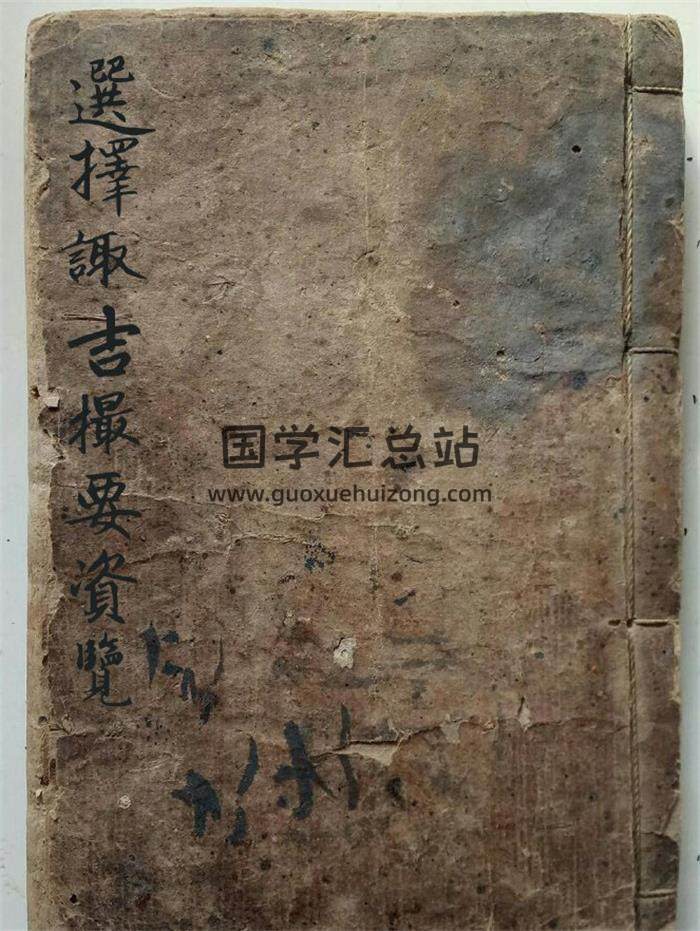 選擇諏吉撮要資覽
国学汇总站
www.guoxuehuizong.com